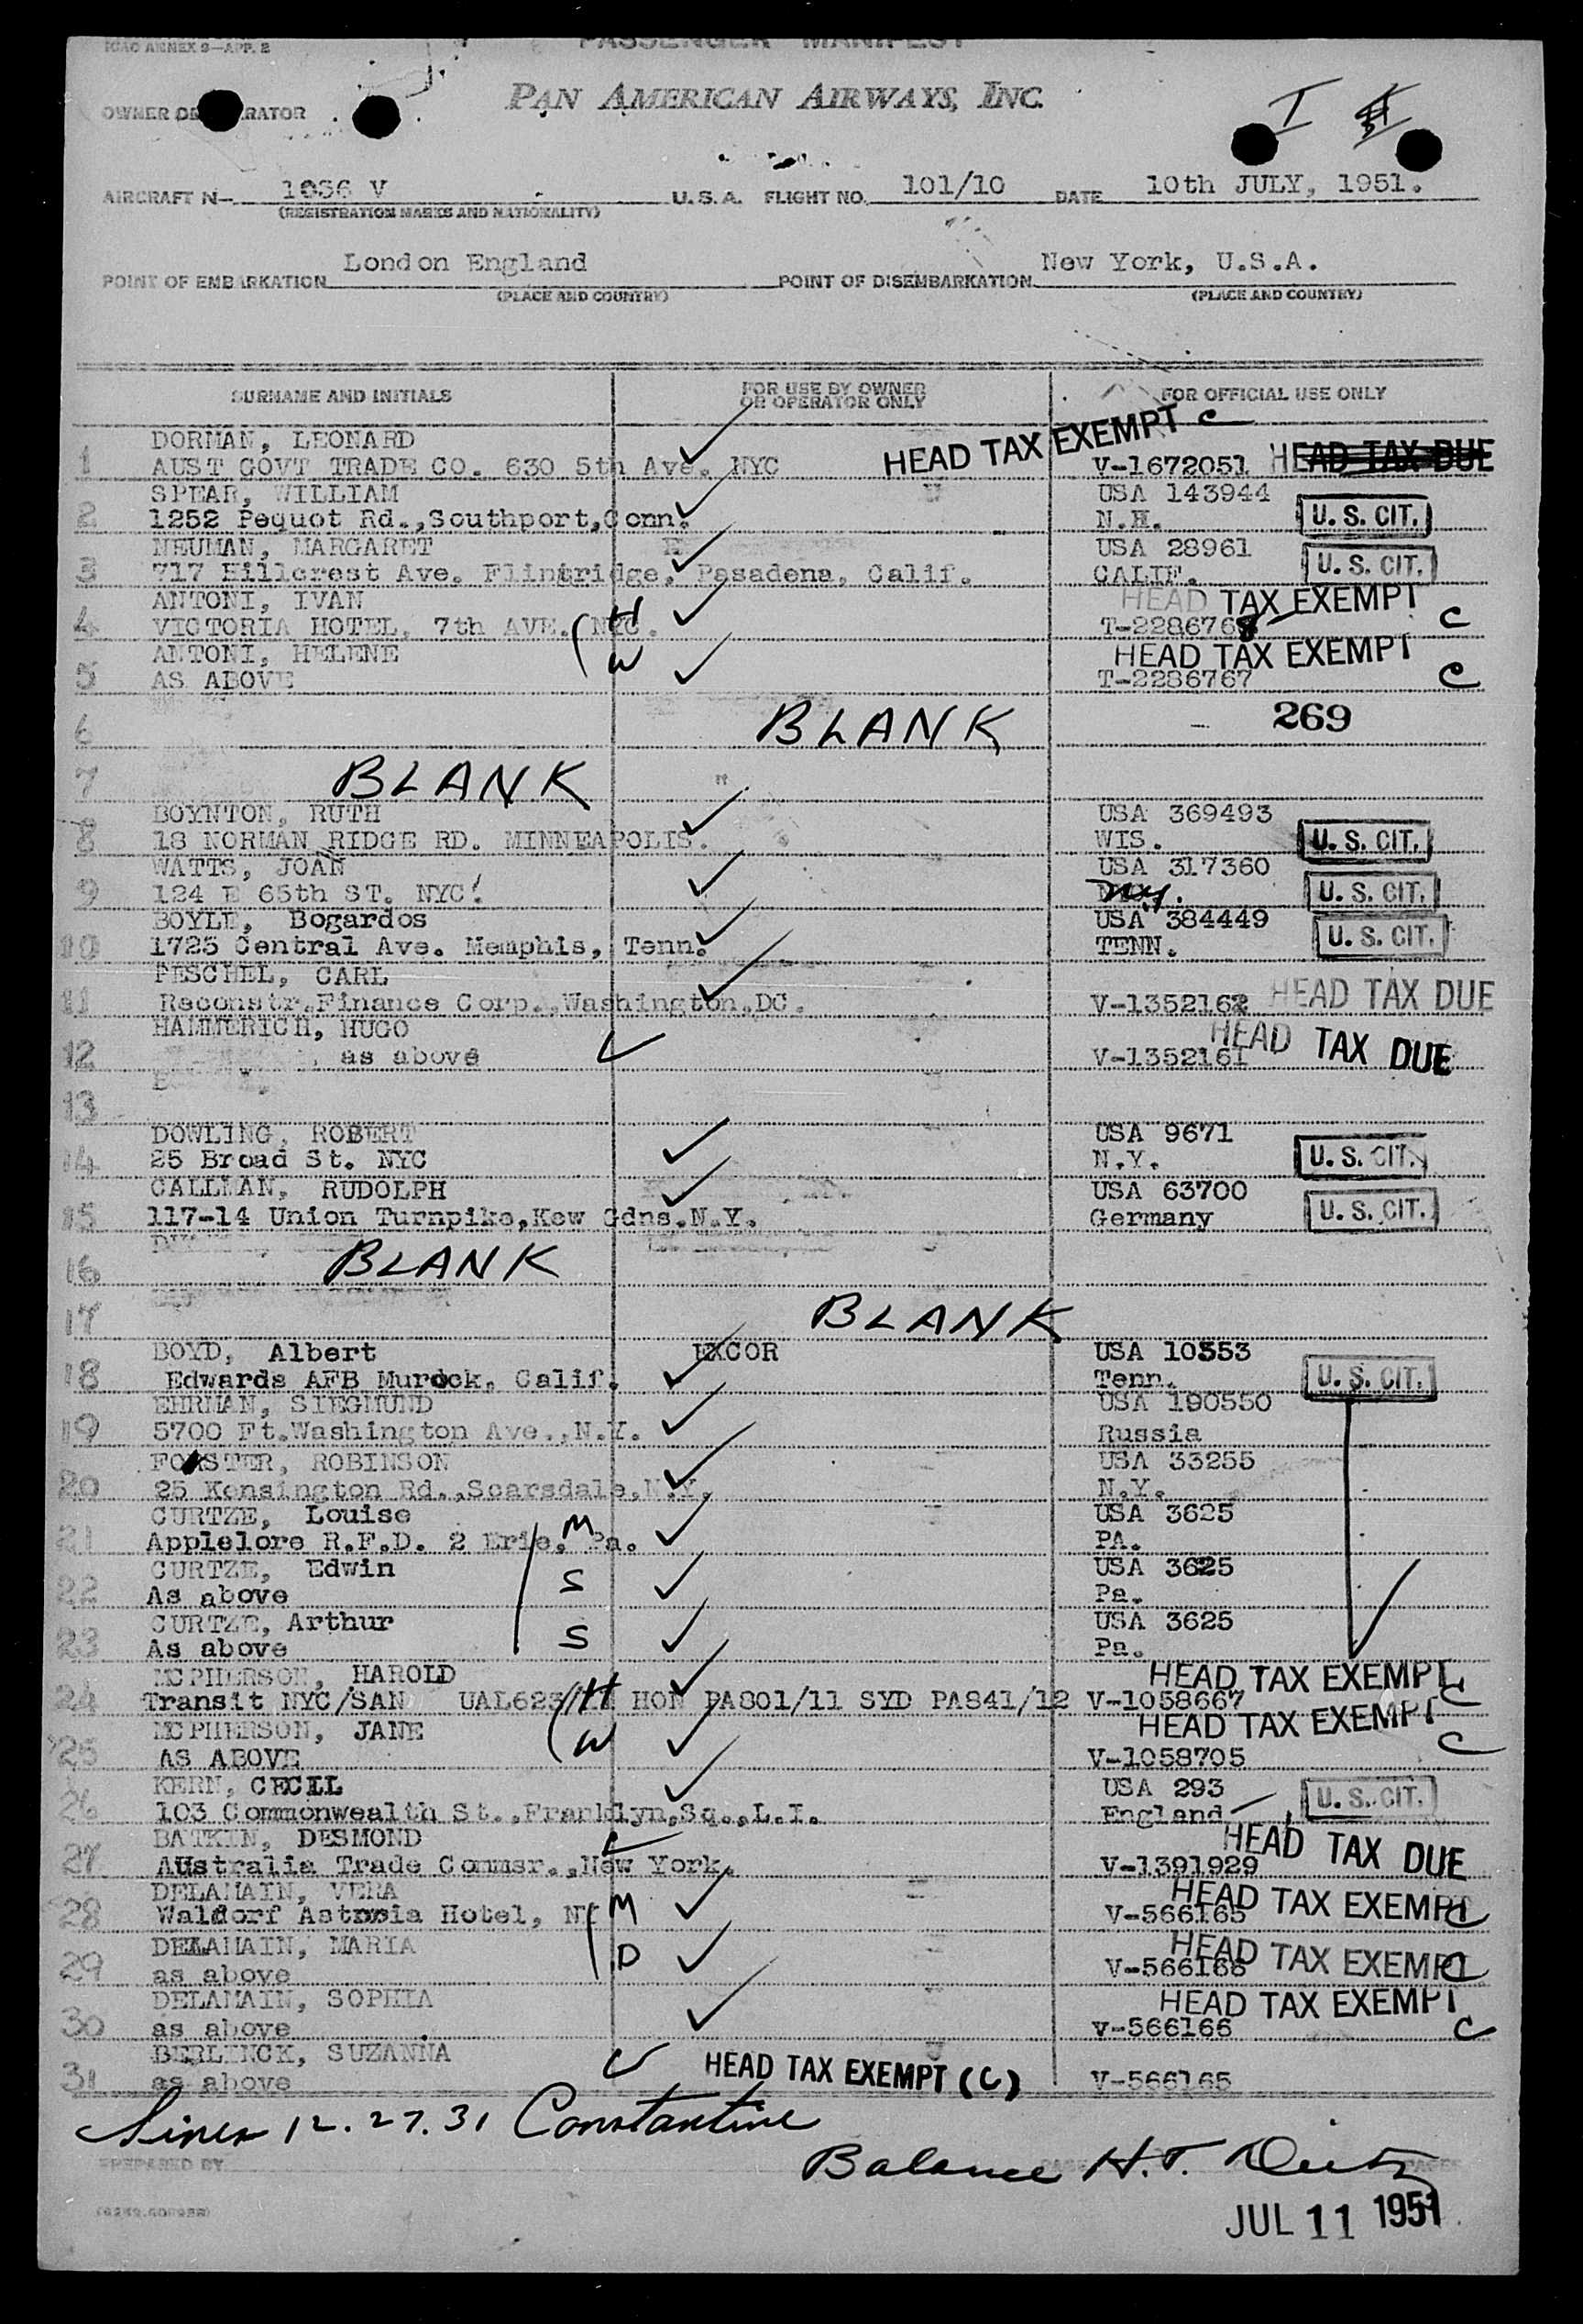 ICAO ANNEX 9—APP. 2
PASSENGER MANIFEST
PAN AMERICAN AIRWAYS, INC.
OWNER OR OPERATOR
I
AIRCRAFT N— 1036 V U.S.A. FLIGHT NO. 101/10 DATE 10th JULY, 1951.
(REGISTRATION MARKS AND NATIONALITY)
POINT OF EMBARKATION London England POINT OF DISEMBARKATION New York, U.S.A.
(PLACE AND COUNTRY) (PLACE AND COUNTRY)
SURNAME AND INITIALS FOR USE BY OWNER OR OPERATOR ONLY FOR OFFICIAL USE ONLY
DORMAN, LEONARD HEAD TAX EXEMPT C
1 AUST GOVT TRADE CO. 630 5th Ave. NYC V-1672051 HEAD TAX DUE
SPEAR, WILLIAM USA 143944
2 1252 Pequot Rd.,Southport,Conn. N.H. U. S. CIT.
NEUMAN, MARGARET USA 28961
3 717 Hillcrest Ave. Flintridge, Pasadena, Calif. CALIF. U. S. CIT.
ANTONI, IVAN H HEAD TAX EXEMPT
4 VICTORIA HOTEL, 7th AVE. NYC. T-2286768 C
ANTONI, HELENE W HEAD TAX EXEMPT
5 AS ABOVE T-2286767 C
6 BLANK - 269
7 BLANK "
BOYNTON, RUTH USA 369493
8 18 NORMAN RIDGE RD. MINNEAPOLIS. WIS. U. S. CIT.
WATTS, JOAN USA 317360
9 124 E 65th ST. NYC. N.Y. U. S. CIT.
BOYLE, Bogardos USA 384449
10 1725 Central Ave. Memphis, Tenn. TENN. U. S. CIT.
PESCHEL, CARL
11 Reconstr.Finance Corp.,Washington,DC. V-1352162 HEAD TAX DUE
HAMMERICH, HUGO
12 , as above V-1352161 HEAD TAX DUE
13
DOWLING, ROBERT USA 9671
14 25 Broad St. NYC N.Y. U. S. CIT.
CALLMAN, RUDOLPH USA 63700
15 117-14 Union Turnpike,Kew Gdns.N.Y. Germany U. S. CIT.
16 BLANK
17 BLANK
BOYD, Albert EXCOR USA 10353
18 Edwards AFB Murock, Calif. Tenn. U. S. CIT.
EHRMAN, SIEGMUND USA 190550
19 5700 Ft.Washington Ave.,N.Y. Russia
FORSTER, ROBINSON USA 33255
20 25 Kensington Rd.,Scarsdale,N.Y. N.Y.
CURTZE, Louise M USA 3625
21 Applelore R.F.D. 2 Erie, Pa. PA.
CURTZE, Edwin S USA 3625
22 As above Pa.
CURTZE, Arthur S USA 3625
23 As above Pa.
MCPHERSON, HAROLD HEAD TAX EXEMPT C
24 Transit NYC/SAN UAL623/ H HON PA801/11 SYD PA841/12 V-1058667
MCPHERSON, JANE W HEAD TAX EXEMPT C
25 AS ABOVE V-1058705
KERN, CECIL USA 293
26 103 Commonwealth St.,Franklyn,Sq.,L.I. England U. S. CIT.
BATKIN, DESMOND HEAD TAX DUE
27 Australia Trade Commsr.,New York. V-1391929
DELAMAIN, VERA HEAD TAX EXEMPT C
28 Waldorf Astoria Hotel, NY M V-566165
DELAMAIN, MARIA D HEAD TAX EXEMPT C
29 as above V-566166
DELAMAIN, SOPHIA HEAD TAX EXEMPT
30 as above V-566166 C
BERLINCK, SUZANNA
31 as above HEAD TAX EXEMPT (C) V-566165
12.27.31 Constantine
Balance H.T.
PREPARED BY PAGES
JUL 11 1951